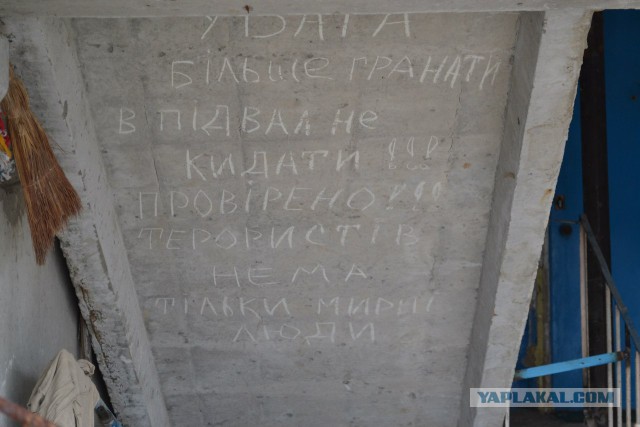 УВАГА
БІЛЬШЕ ГРАНАТИ
В ПІДВАЛ НЕ
КИДАТИ !!!
ПРОВІРЕНО !!!
ТЕРОРИСТІВ
НЕМА
ТІЛЬКИ МИРНІ
ЛЮДИ
YAPLAKAL.COM